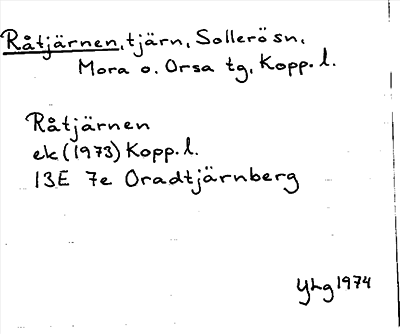 Råtjärnen, tjärn, Sollerö sn,
Mora o. Orsa tg, Kopp. l.
Råtjärnen
ek (1973) Kopp. l.
13E 7e Oradtjärnberg
YLg 1974